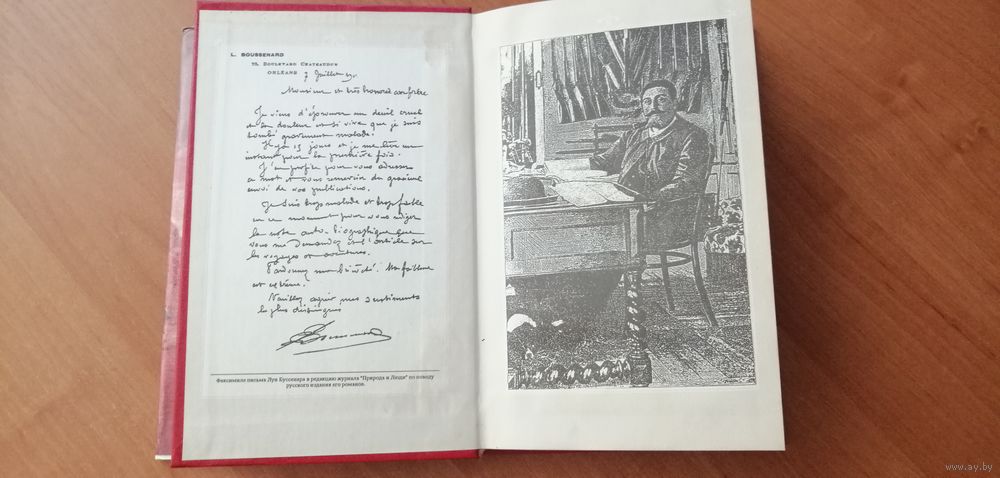 L. BOUSSENARD
75, BOULEVARD CHATEAUDUN
ORLÉANS 7 Juillet
Monsieur et très honoré confrère
Je viens d'éprouver un deuil cruel
et la douleur est si vive que je suis
tombé gravement malade.
Il y a 15 jours et je me lève un
instant pour la première fois.
J'en profite pour vous adresser
ce mot et vous remercier du gracieux
envoi de vos publications.
Je suis trop malade et trop faible
en ce moment pour vous rédiger
la note auto-biographique que
vous me demandez ainsi l'article sur
les voyages et aventures.
Pardonnez ma brièveté. Ma faiblesse
est extrême.
Veuillez agréer mes sentiments
les plus distingués
Факсимиле письма Луи Буссенара в редакцию журнала "Природа и Люди" по поводу
русского издания его романов.
www.ay.by